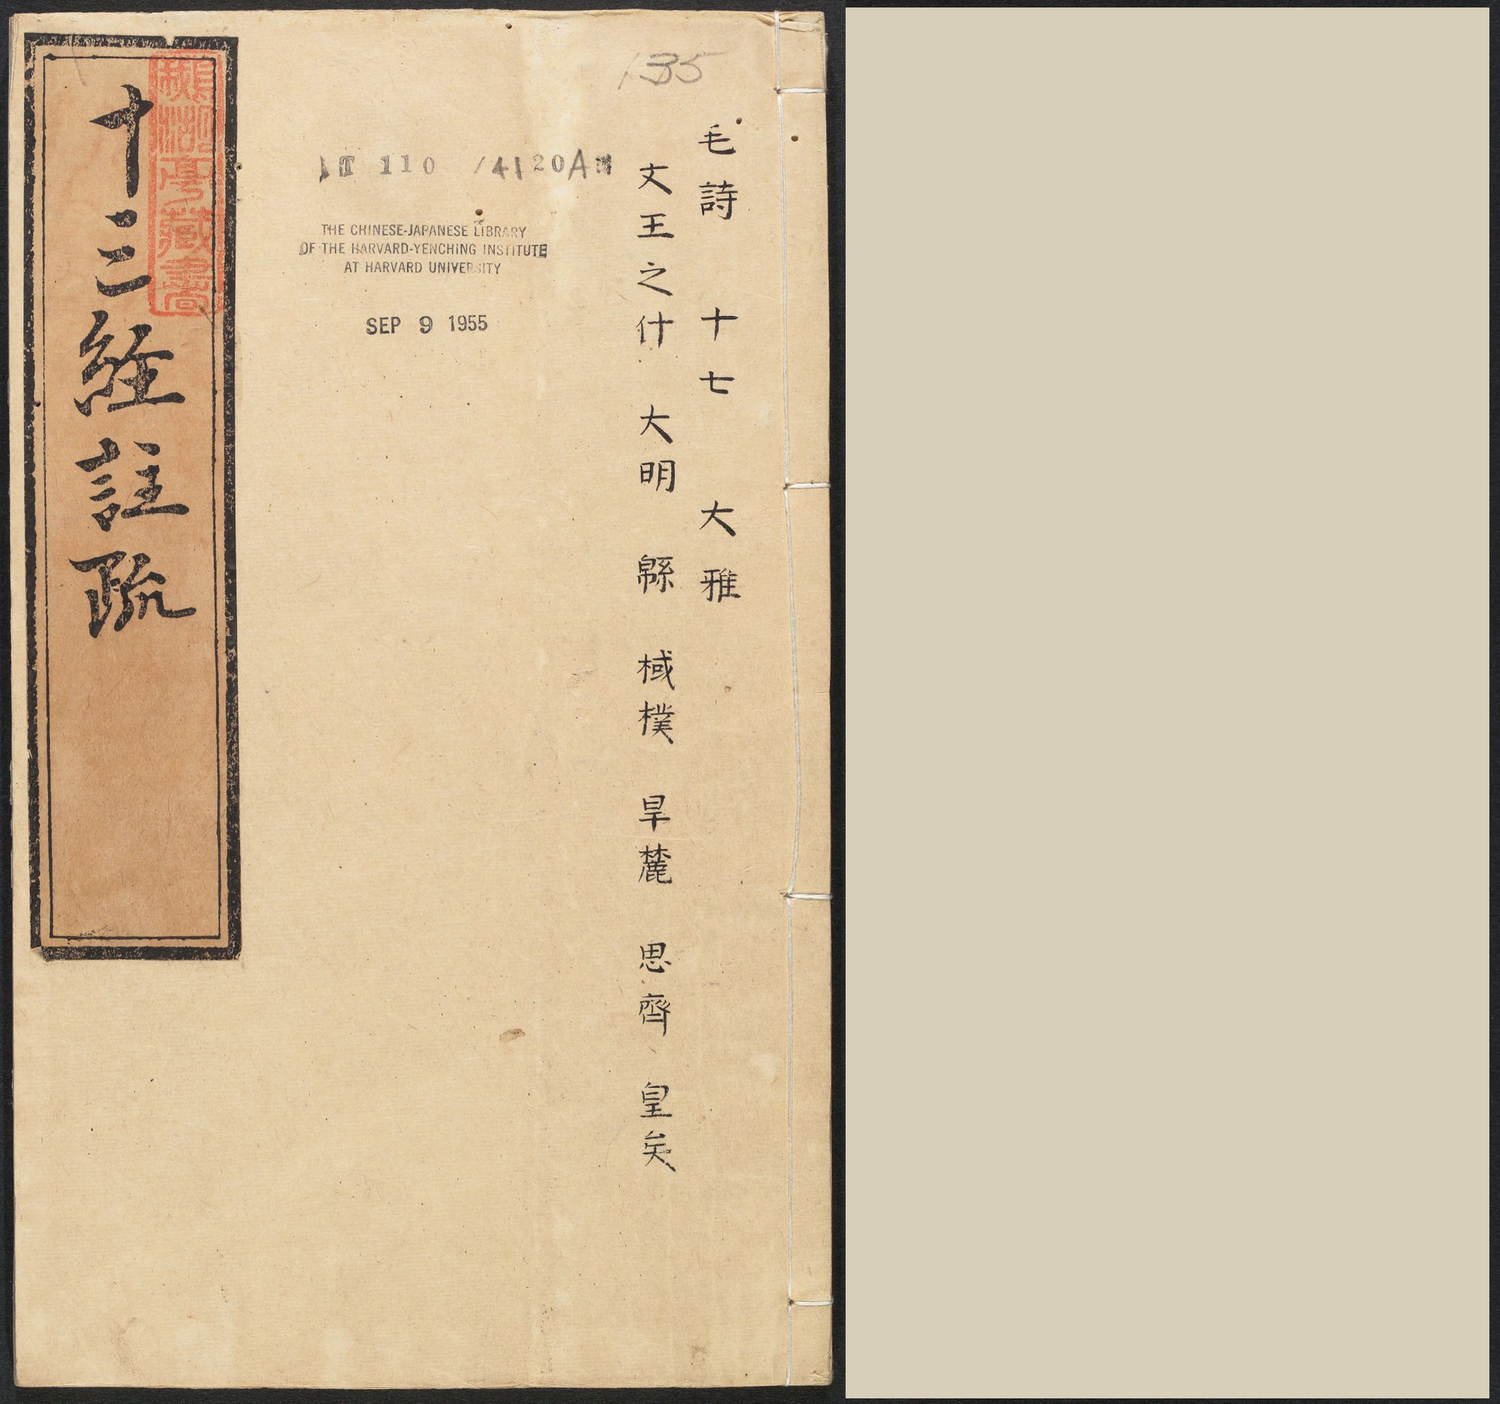 135
毛詩 十七 大雅
文王之什 大明 緜 棫樸 旱麓 思齊 皇矣
T 110 /4120A
THE CHINESE-JAPANESE LIBRARY
OF THE HARVARD-YENCHING INSTITUTE
AT HARVARD UNIVERSITY
SEP 9 1955
十三經註疏
亭藏書